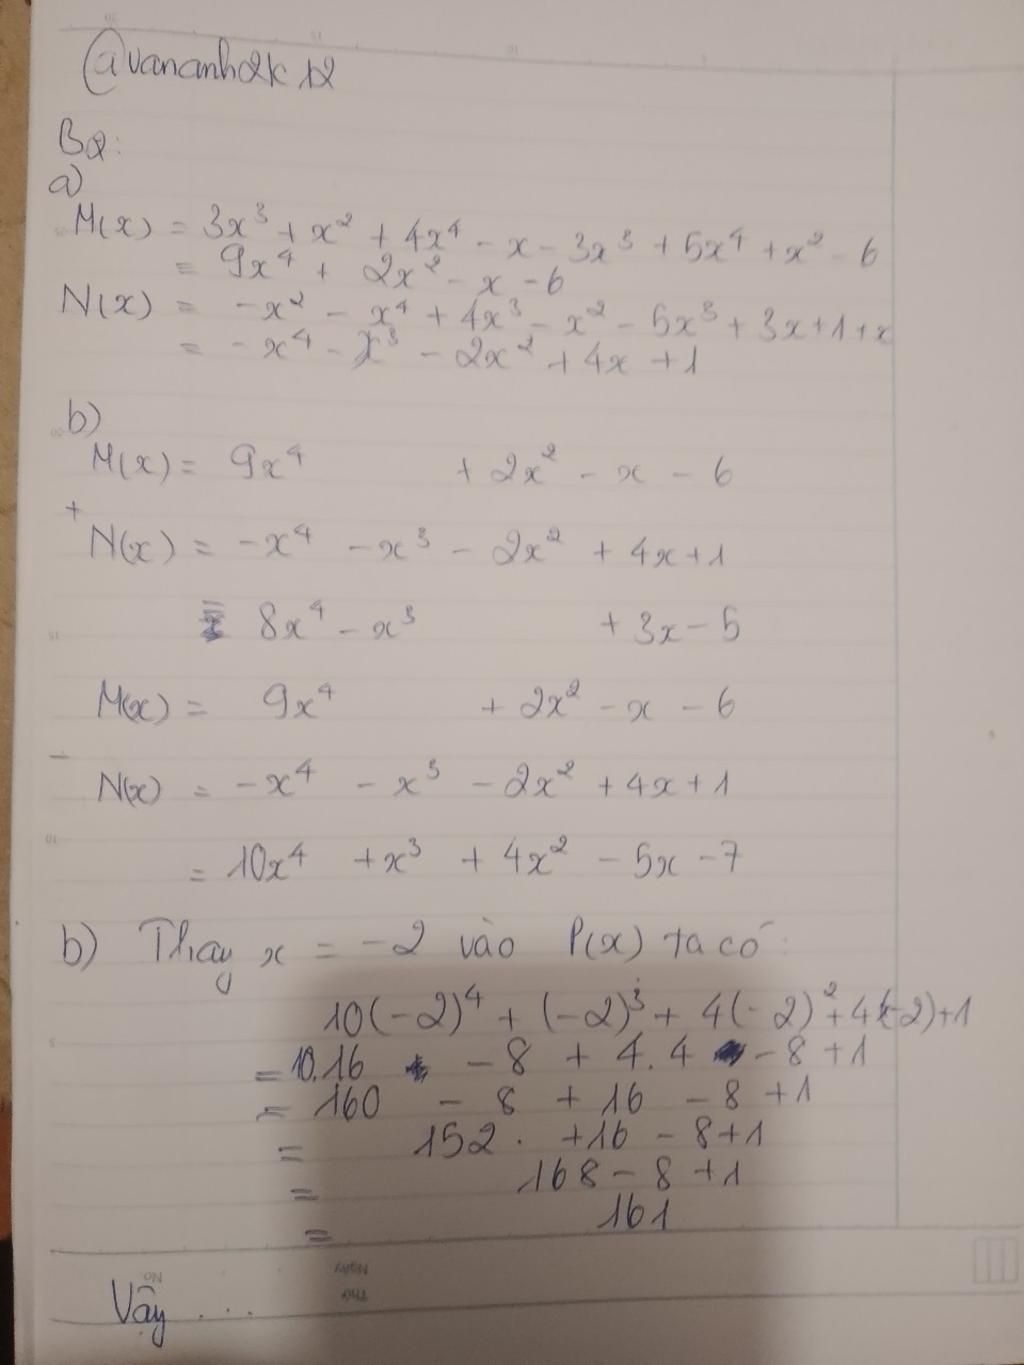 @vananh2k12
B2:
a)
M(x) = 3x³ + x² + 4x⁴ - x - 3x³ + 5x⁴ + x² - 6
= 9x⁴ + 2x² - x - 6
N(x) = -x² - x⁴ + 4x³ - x² - 5x³ + 3x + 1 + x
= -x⁴ - x³ - 2x² + 4x + 1
b)
M(x) = 9x⁴ + 2x² - x - 6
+
N(x) = -x⁴ - x³ - 2x² + 4x + 1
= 8x⁴ - x³ + 3x - 5
M(x) = 9x⁴ + 2x² - x - 6
-
N(x) = -x⁴ - x³ - 2x² + 4x + 1
= 10x⁴ + x³ + 4x² - 5x - 7
b) Thay x = -2 vào P(x) ta có:
10(-2)⁴ + (-2)³ + 4(-2)² + 4(-2) + 1
= 10.16 - 8 + 4.4 - 8 + 1
= 160 - 8 + 16 - 8 + 1
= 152 . + 16 - 8 + 1
= 168 - 8 + 1
= 161
Vậy ...
No.
Ngày
Thứ